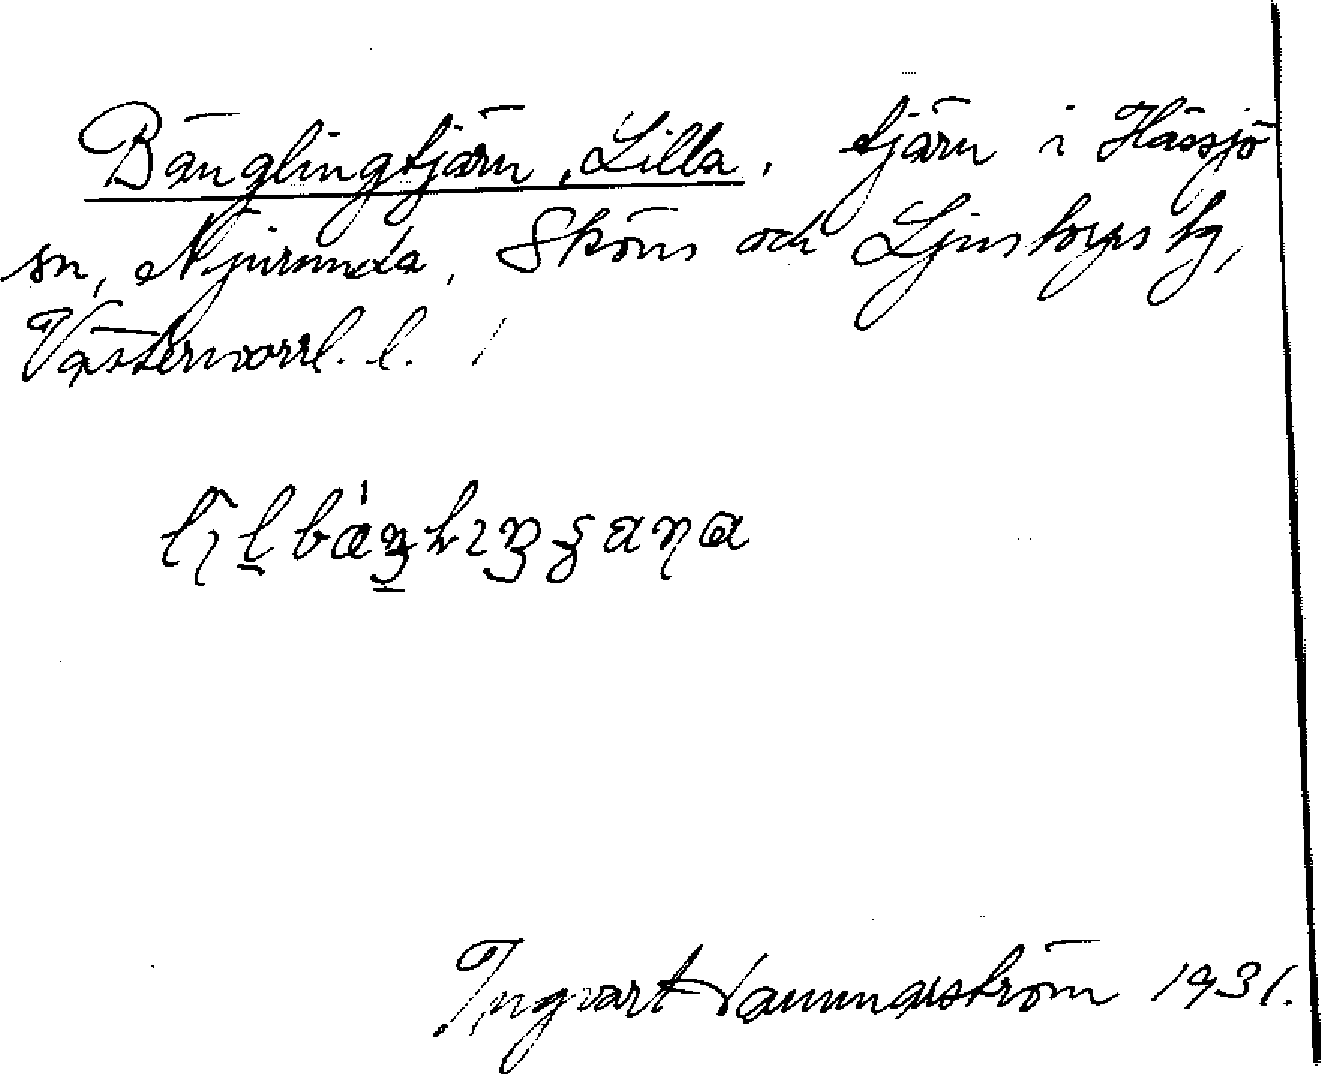 Bänglingtjärn, Lilla, tjärn i Hässjö
sn, Njurunda, Sköns och Ljustorps tg,
Västernorrl. l.
Ingvart 1931.